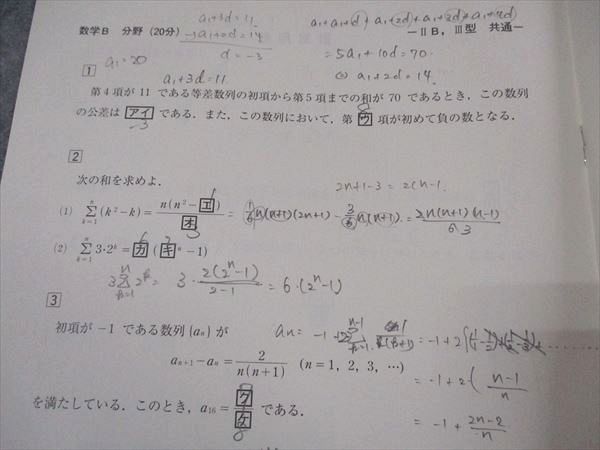 a₁+3d=11
-)a₁+2d=14
d=-3
a₁+a₁+d+a₁+2d+a₁+3d+a₁+4d
数学B 分野 (20分)
-ⅡB, Ⅲ型 共通-
=5a₁+10d=70
a₁=20
a₁+2d=14
1
a₁+3d=11
第4項が 11 である等差数列の初項から第5項までの和が 70 であるとき, この数列
の公差は アイ である. また, この数列において, 第 ウ 項が初めて負の数となる.
-3
8
2
次の和を求めよ.
2n+1-3=2(n-1
(1) Σ_{k=1}^{n}(k²-k)=n(n²-エ)/オ = 1/6 n(n+1)(2n+1) - 3/6 n(n+1) = 2n(n+1)(n-1)/6 3
1
3
(2) Σ_{k=1}^{n}3・2ᵏ=カ(キⁿ-1)
6
2
3Σ_{k=1}^{n}2ᵏ = 3・2(2ⁿ-1)/2-1 = 6・(2ⁿ-1)
3
初項が -1 である数列{aₙ}が
aₙ= -1+2Σ_{k=1}^{n-1} 1/k(k+1) = -1+2{(1/1-1/2)+(1/2-1/3)+……
aₙ₊₁-aₙ=2/n(n+1) (n=1, 2, 3, …)
= -1+2(n-1/n
を満たしている. このとき, a₁₆=ク/ケ である.
8
= -1+2n-2/n